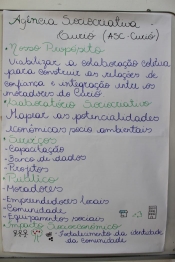 Agência Sociocriativa
Curió (ASC-Curió)
• Nosso Propósito
Viabilizar a colaboração coletiva
para construir as relações de
confiança e integração entre os
moradores do Curió.
• Laboratório Sociocriativo
Mapear as potencialidades
econômicas sócio ambientais
• Serviços
- Capacitação
- Banco de dados
- Projetos
• Público
- Moradores
- Empreendedores locais
- Comunidade
- Equipamentos sociais
• Impacto Socioeconômico
- Fortalecimento da identidade
da comunidade